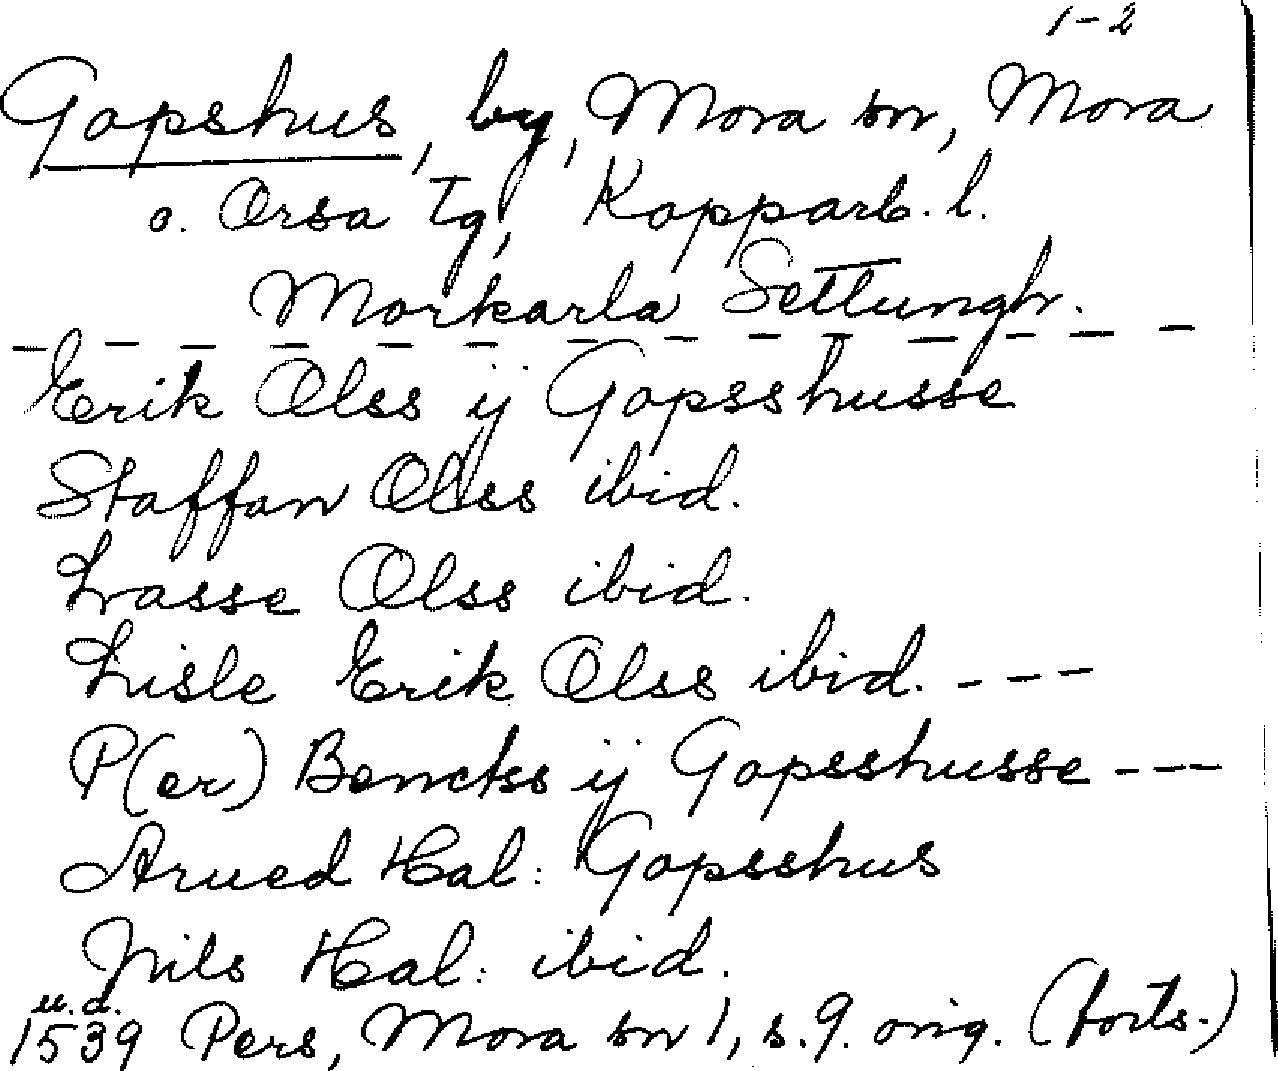 1-2
Gopshus, by, Mora sn, Mora
o. Orsa tg, Kopparb. l.
Morkarla Settungh.
Erik Olss ij Gopsshusse
Staffan Olss ibid.
Lasse Olss ibid.
Lisle Erik Olss ibid. ---
P(er) Benckss ij Gopsshusse ---
Arued Hal: Gopsshus
Nils Hal: ibid.
u.d.
1539 Pers, Mora sn 1, s. 9. orig. (forts.)